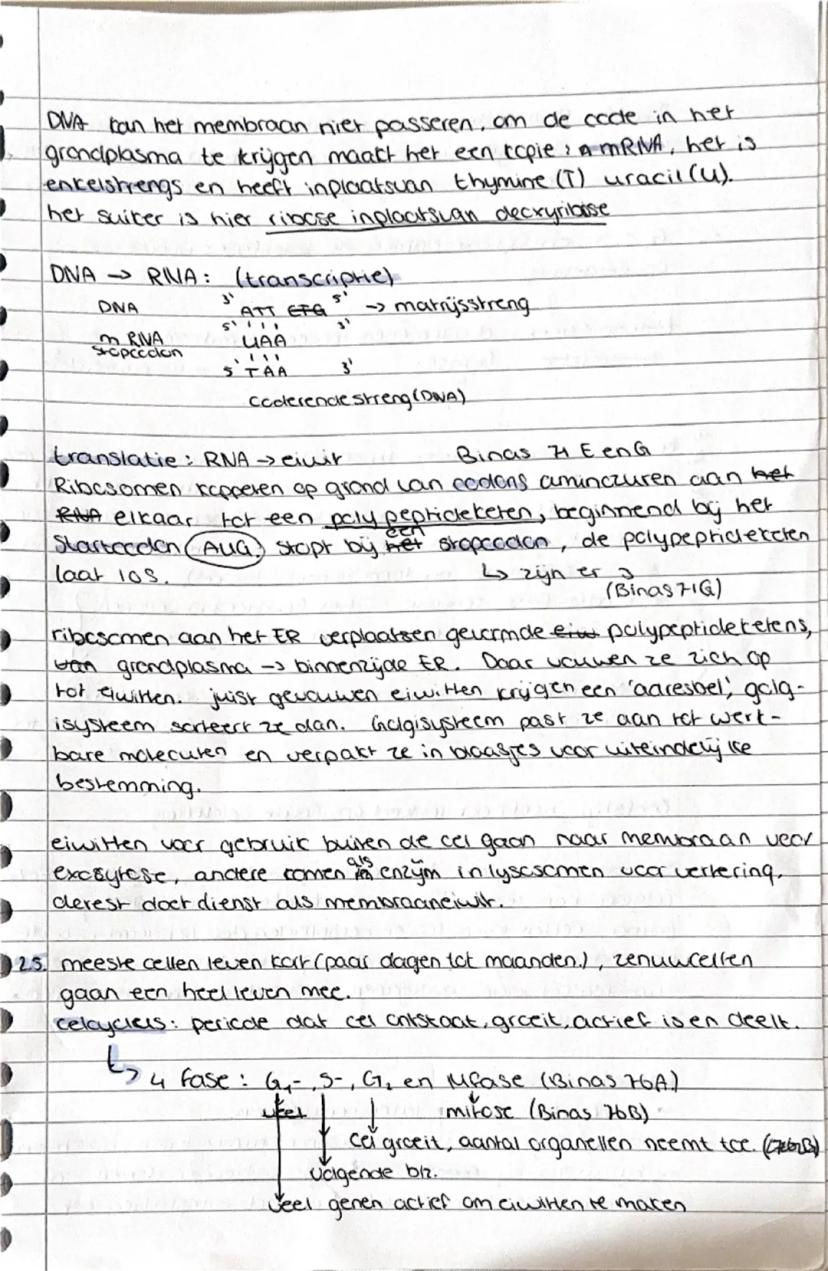 DNA kan het membraan niet passeren, om de code in het
grondplasma te krijgen maakt het een kopie: mRNA, het is
enkelstrengs en heeft inplaatsvan thymine (T) uracil (U).
het suiker is hier ribose inplaatsvan deoxyribose
DNA → RNA: (transcriptie)
DNA 3' ATT 5' → matrijsstreng
5' ' ' ' 3'
mRNA UAA
stopcodon ' ' '
5' TAA 3'
coderende streng (DNA)
translatie: RNA → eiwit Binas 71 E en G
Ribosomen koppelen op grond van codons aminozuren aan het
RNA elkaar tot een polypeptideketen, beginnend bij het
startcodon (AUG) stopt bij het een stopcodon, de polypeptideketen
laat los. ↳ zijn er 3
(Binas 71G)
ribosomen aan het ER verplaatsen gevormde eiw polypeptideketens,
van grondplasma → binnenzijde ER. Daar vouwen ze zich op
tot eiwitten. juist gevouwen eiwitten krijgen een 'adreslabel', golg-
isysteem sorteert ze dan. Golgisysteem past ze aan tot werk-
bare moleculen en verpakt ze in blaasjes voor uiteindelijke
bestemming.
eiwitten voor gebruik buiten de cel gaan naar membraan voor
exocytose, andere komen als enzijm in lysosomen voor vertering.
de rest doet dienst als membraaneiwit.
2.5. meeste cellen leven kort (paar dagen tot maanden.), zenuwcellen
gaan een heel leven mee.
celcyclus: periode dat cel ontstaat, groeit, actief is en deelt.
↳ 4 fase: G₁-, S-, G₂ en M fase (Binas 76A)
veel mitose (Binas 76B)
cel groeit, aantal organellen neemt toe.
volgende blz.
veel genen actief om eiwitten te maken